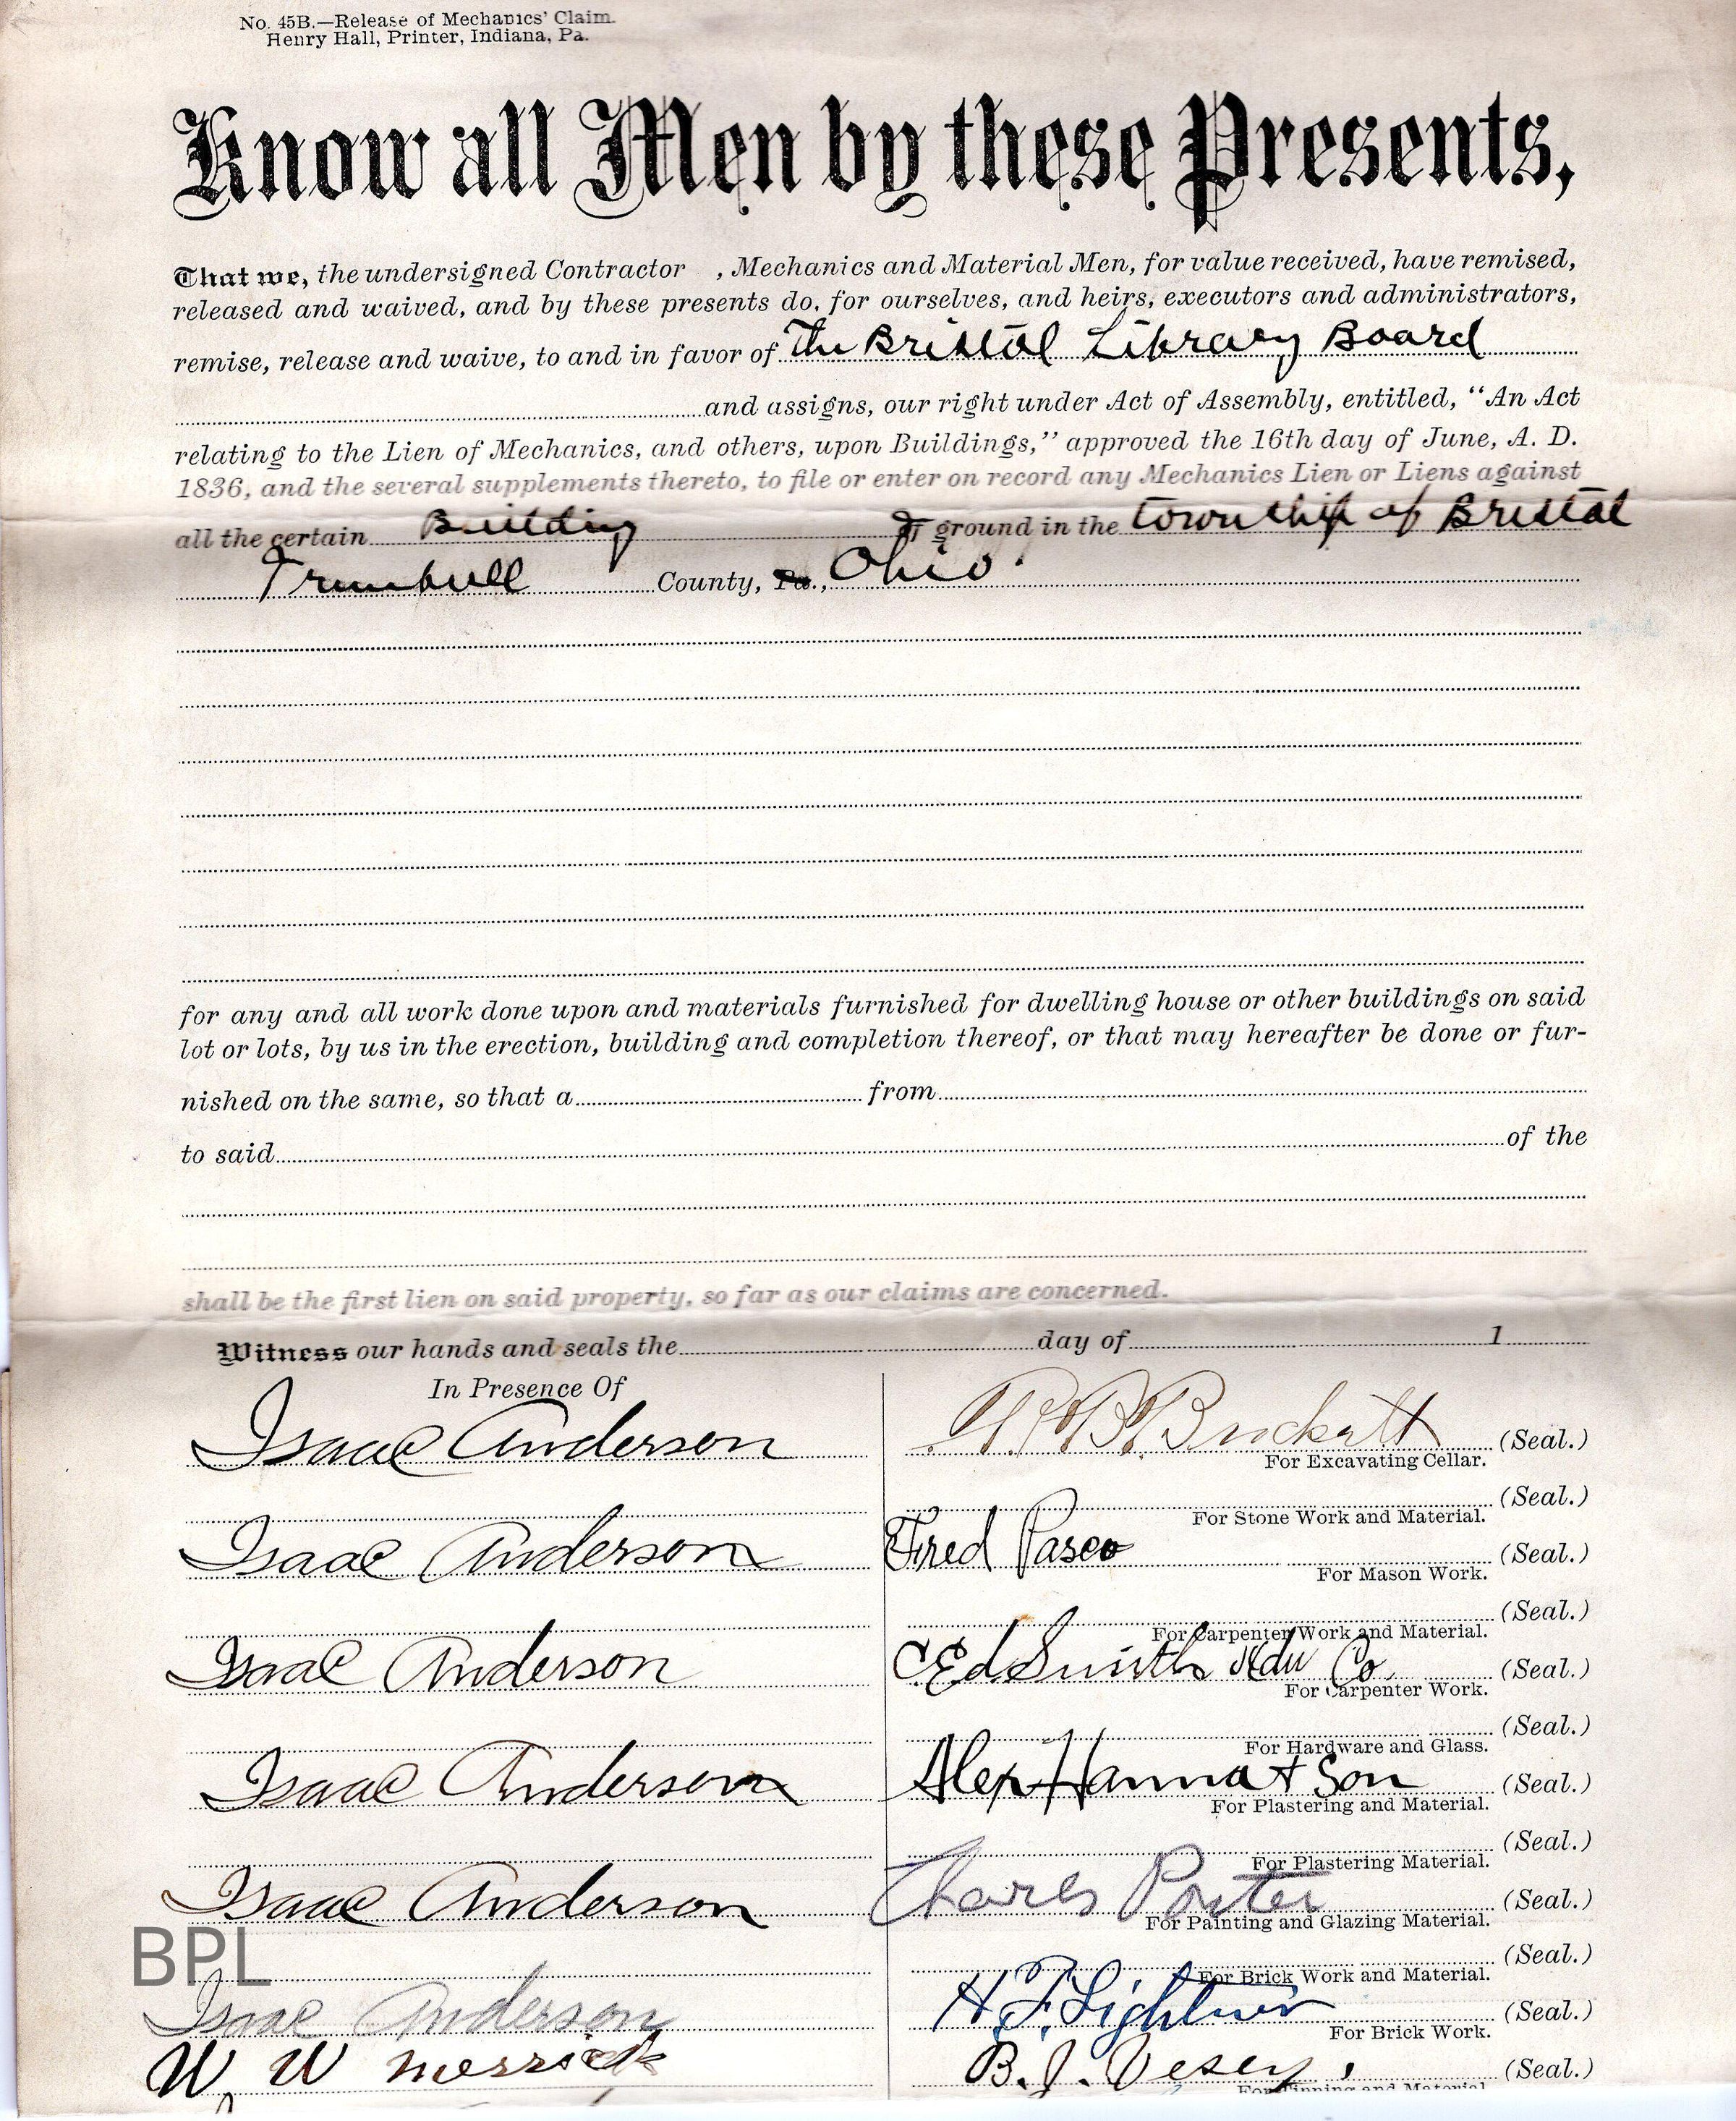 No. 45B.—Release of Mechanics' Claim.
Henry Hall, Printer, Indiana, Pa.
Know all Men by these Presents,
That we, the undersigned Contractor , Mechanics and Material Men, for value received, have remised,
released and waived, and by these presents do, for ourselves, and heirs, executors and administrators,
remise, release and waive, to and in favor of The Bristol Library Board
and assigns, our right under Act of Assembly, entitled, "An Act
relating to the Lien of Mechanics, and others, upon Buildings," approved the 16th day of June, A. D.
1836, and the several supplements thereto, to file or enter on record any Mechanics Lien or Liens against
all the certain Building of ground in the township of Bristol
Trumbull County, Pa., Ohio.
for any and all work done upon and materials furnished for dwelling house or other buildings on said
lot or lots, by us in the erection, building and completion thereof, or that may hereafter be done or fur-
nished on the same, so that a from
to said of the
shall be the first lien on said property, so far as our claims are concerned.
Witness our hands and seals the day of 1
In Presence Of
Isaac Anderson
B. Brickett (Seal.)
For Excavating Cellar.
(Seal.)
For Stone Work and Material.
Isaac Anderson
Fred Pasco (Seal.)
For Mason Work.
(Seal.)
For Carpenter Work and Material.
Isaac Anderson
Ed Smith Co (Seal.)
For Carpenter Work.
(Seal.)
For Hardware and Glass.
Isaac Anderson
Alex Hanna & Son (Seal.)
For Plastering and Material.
(Seal.)
For Plastering Material.
Isaac Anderson
Charles Porter (Seal.)
For Painting and Glazing Material.
BPL
(Seal.)
For Brick Work and Material.
Isaac Anderson
H. F. Lightner (Seal.)
For Brick Work.
W W Merrick
B. J. Vesey (Seal.)
For Tinning and Material